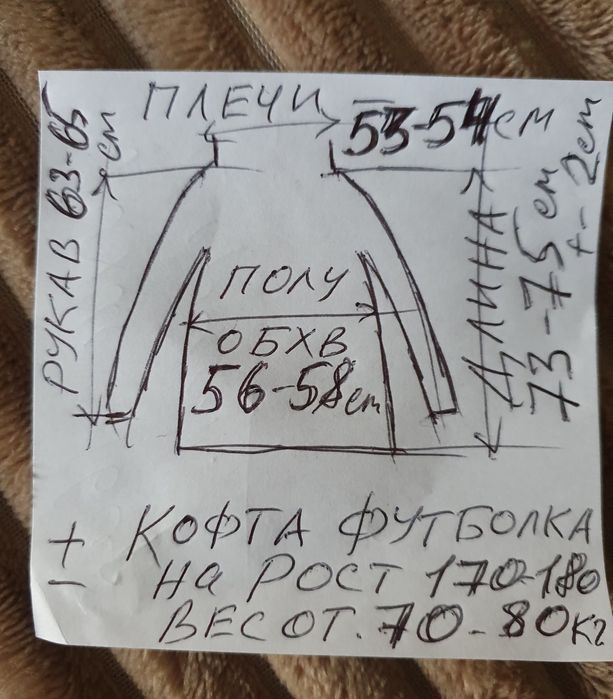 ПЛЕЧИ 53-54 см
РУКАВ 63-65 см
ПОЛУ
ОБХВ
56-58 см
ДЛИНА
73-75 см
+- 2см
± КОФТА ФУТБОЛКА
НА РОСТ 170-180
ВЕС ОТ. 70-80кг